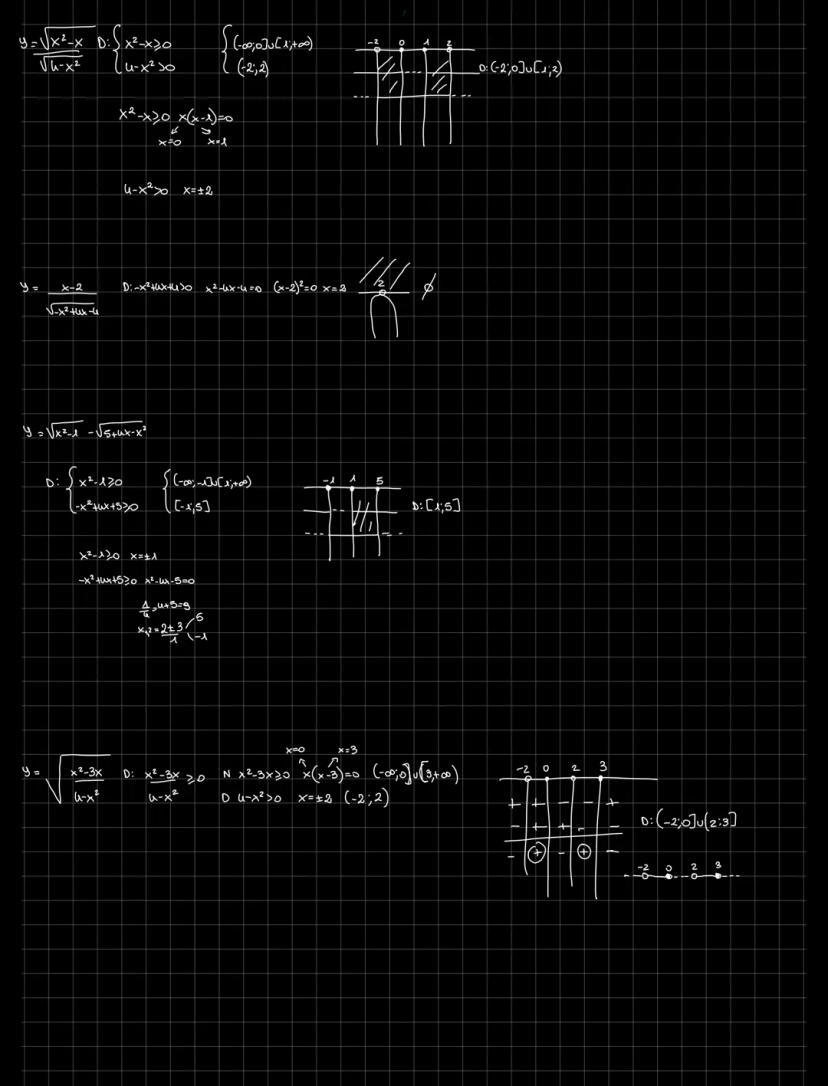 y = √(x²-x) / √(4-x²) D: { x²-x≥0 { (-∞;0]∪[1;+∞)
4-x²>0 (-2;2)
-2 0 1 2
D: (-2;0]∪[1;2)
x²-x≥0 x(x-1)=0
x=0 x=1
4-x²>0 x=±2
y = (x-2) / √(-x²+4x-4) D: -x²+4x+4>0 x²-4x-4=0 (x-2)²=0 x=2 2 ∅
y = √(x²-1) - √(5+4x-x²)
D: { x²-1≥0 { (-∞;-1]∪[1;+∞)
-x²+4x+5≥0 [-1;5]
-1 1 5
D: [1;5]
x²-1≥0 x=±1
-x²+4x+5≥0 x²-4x-5=0
Δ/4=4+5=9
x₁,₂ = (2±3)/1 5
-1
x=0 x=3
y = √((x²-3x)/(4-x²)) D: (x²-3x)/(4-x²) ≥0 N x²-3x≥0 x(x-3)=0 (-∞;0]∪[3;+∞)
D 4-x²>0 x=±2 (-2;2)
-2 0 2 3
+ + - - +
- + + - -
- + - + -
D: (-2;0]∪(2;3]
-2 0 2 3